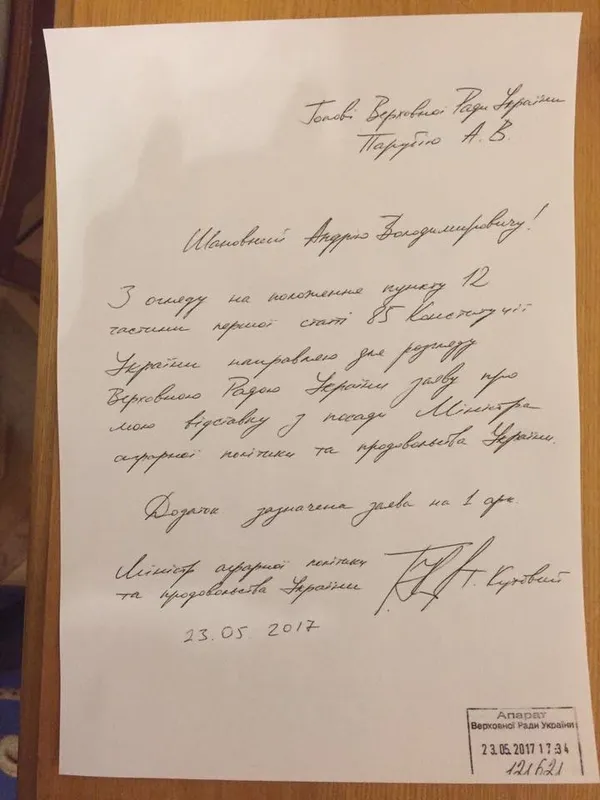 Голові Верховної Ради України
Парубію А. В.
Шановний Андрію Володимировичу!
З огляду на положення пункту 12
частини першої статті 85 Конституції
України направляю для розгляду
Верховною Радою України заяву про
мою відставку з посади Міністра
аграрної політики та продовольства України.
Додаток зазначена заява на 1 арк.
Міністр аграрної політики
та продовольства України
Т. Кутовий
23.05.2017
Апарат
Верховної Ради України
23.05.2017 17:34
121621